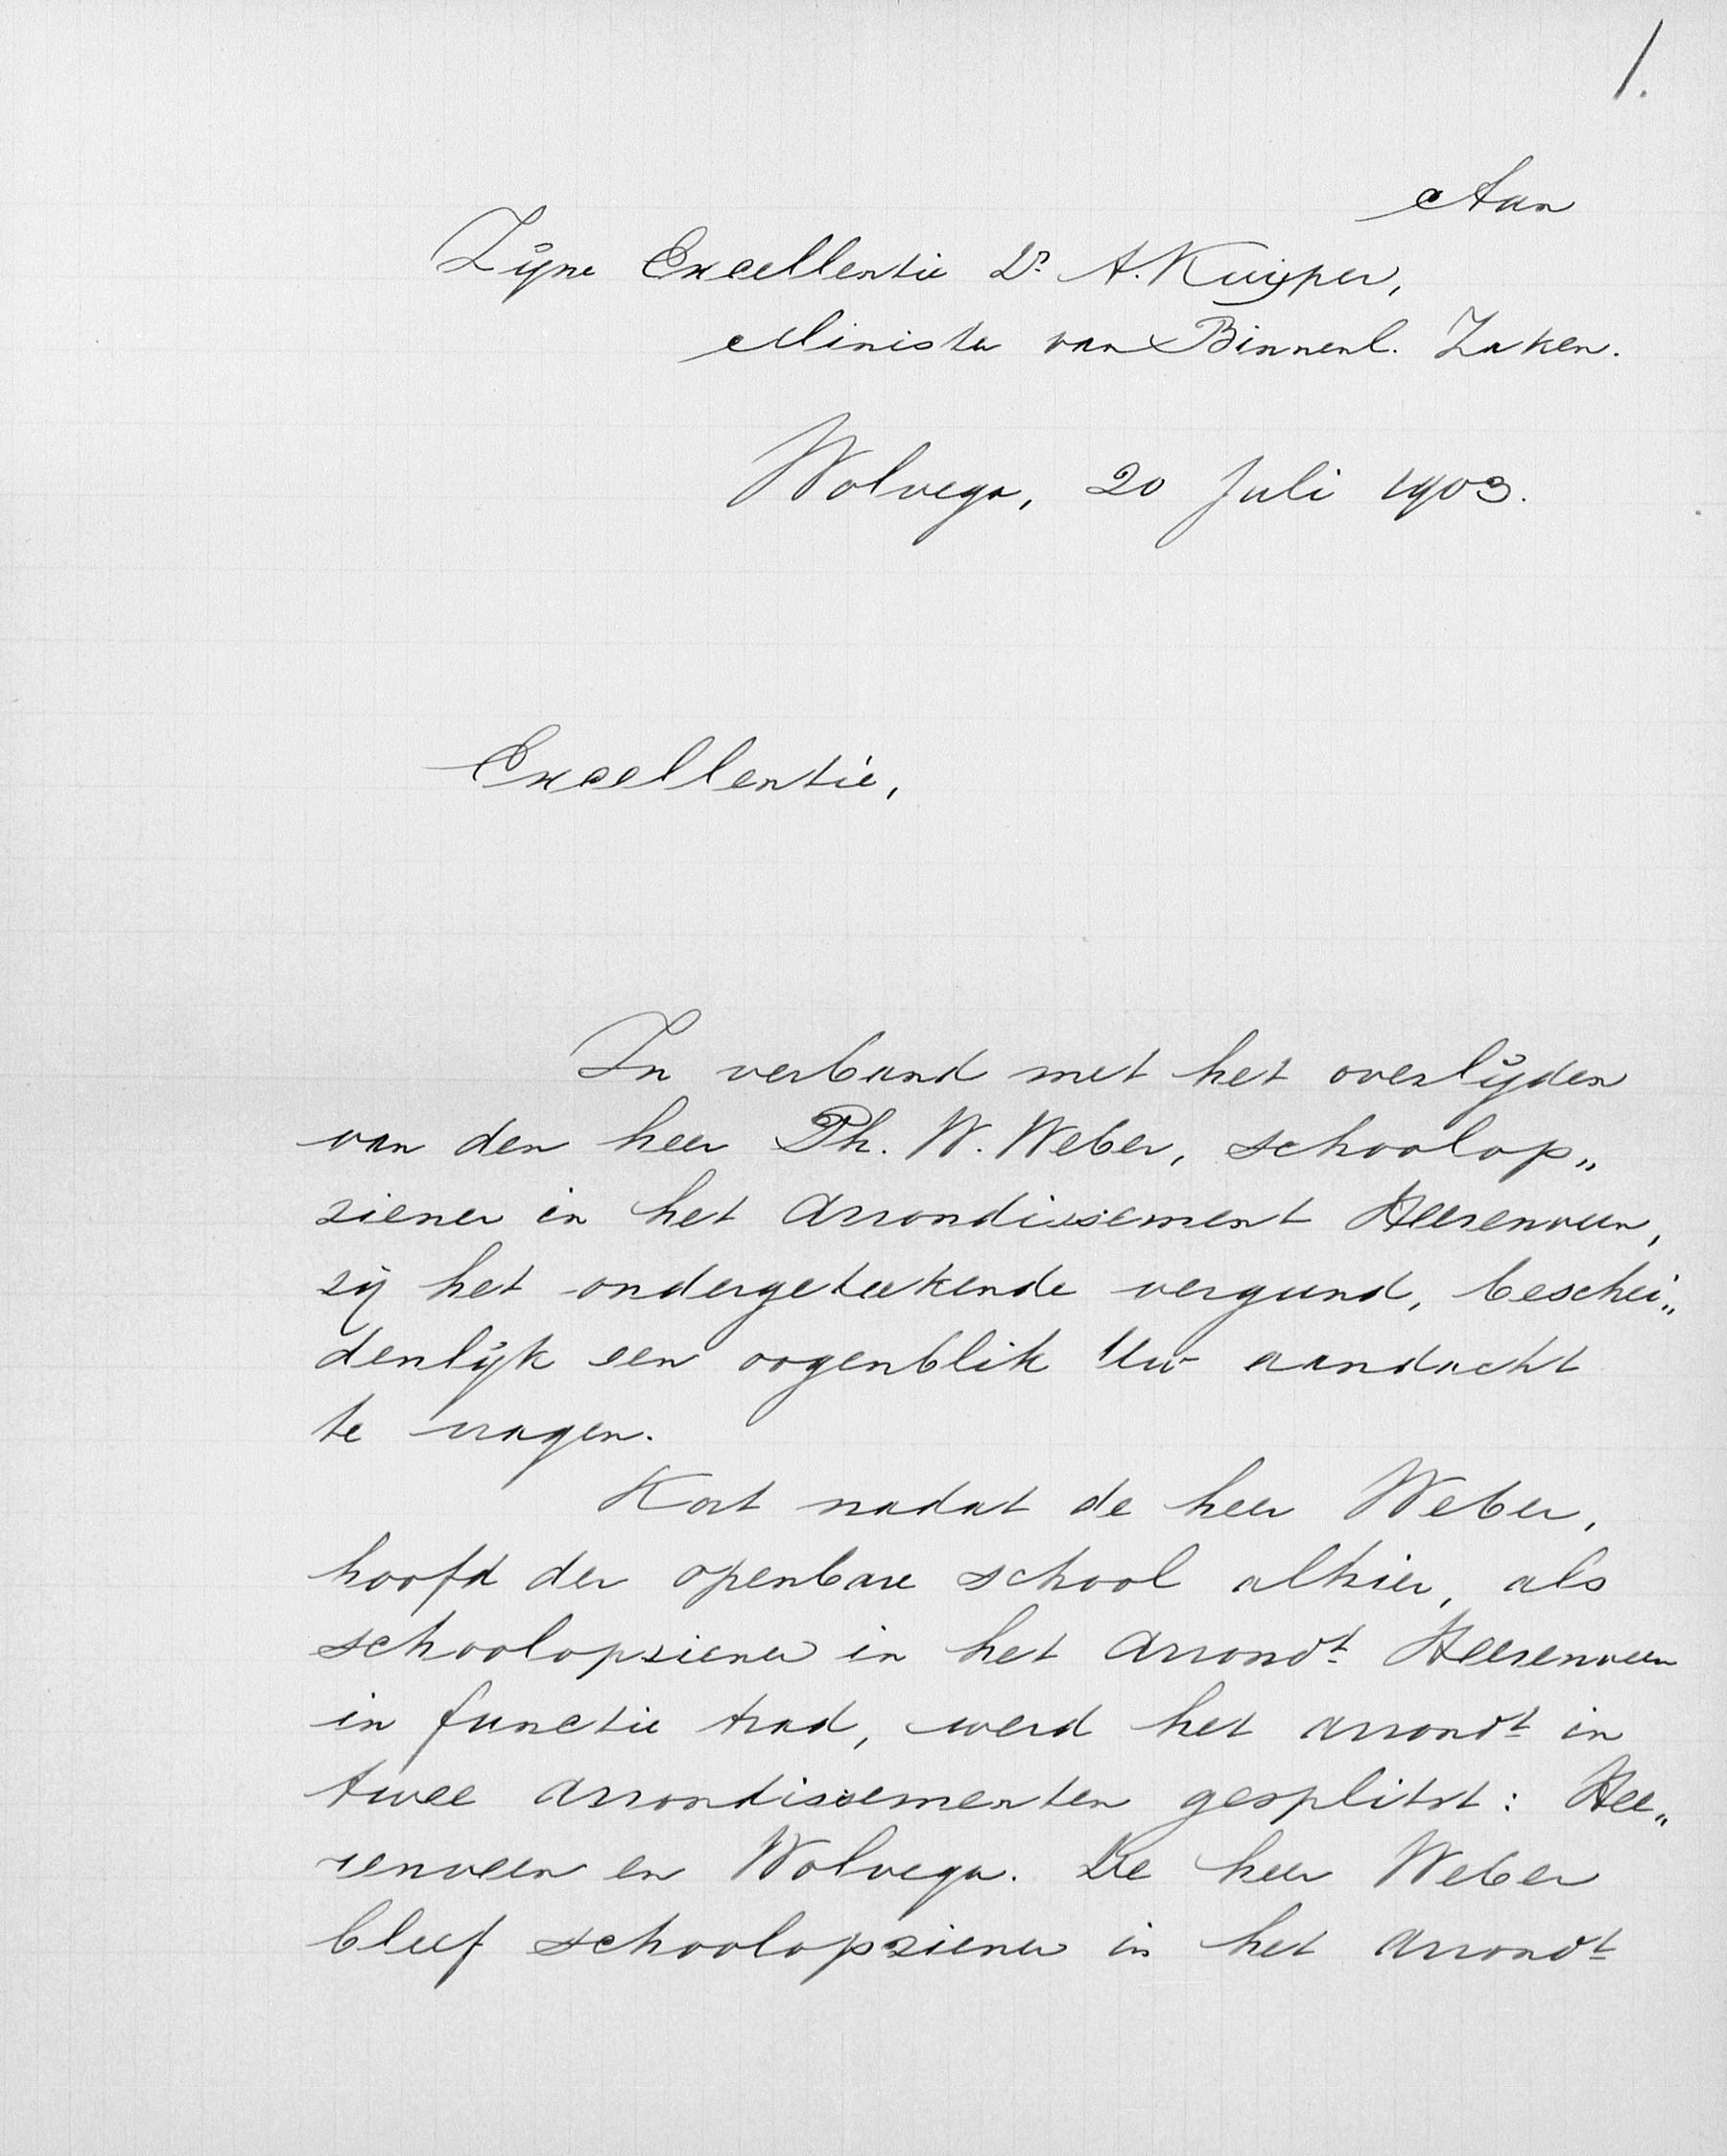 1.
Aan
Zijne Excellentie Dr. A. Kuijper,
Minister van Binnenl. Zaken.
Wolvega, 20 Juli 1903.
Excellentie,
In verband met het overlijden
van den heer Ph. W. Weber, schoolop„
ziener in het Arrondissement Heerenveen,
zij het ondergeteekende vergund, beschei„
denlijk een oogenblik Uw aandacht
te vragen.
Kort nadat de heer Weber,
hoofd der openbare school alhier, als
schoolopziener in het Arrondt Heerenveen
in functie trad, werd het arrondt in
twee Arrondissementen gesplitst: Hee„
renveen en Wolvega. De heer Weber
bleef schoolopziener in het Arrondt